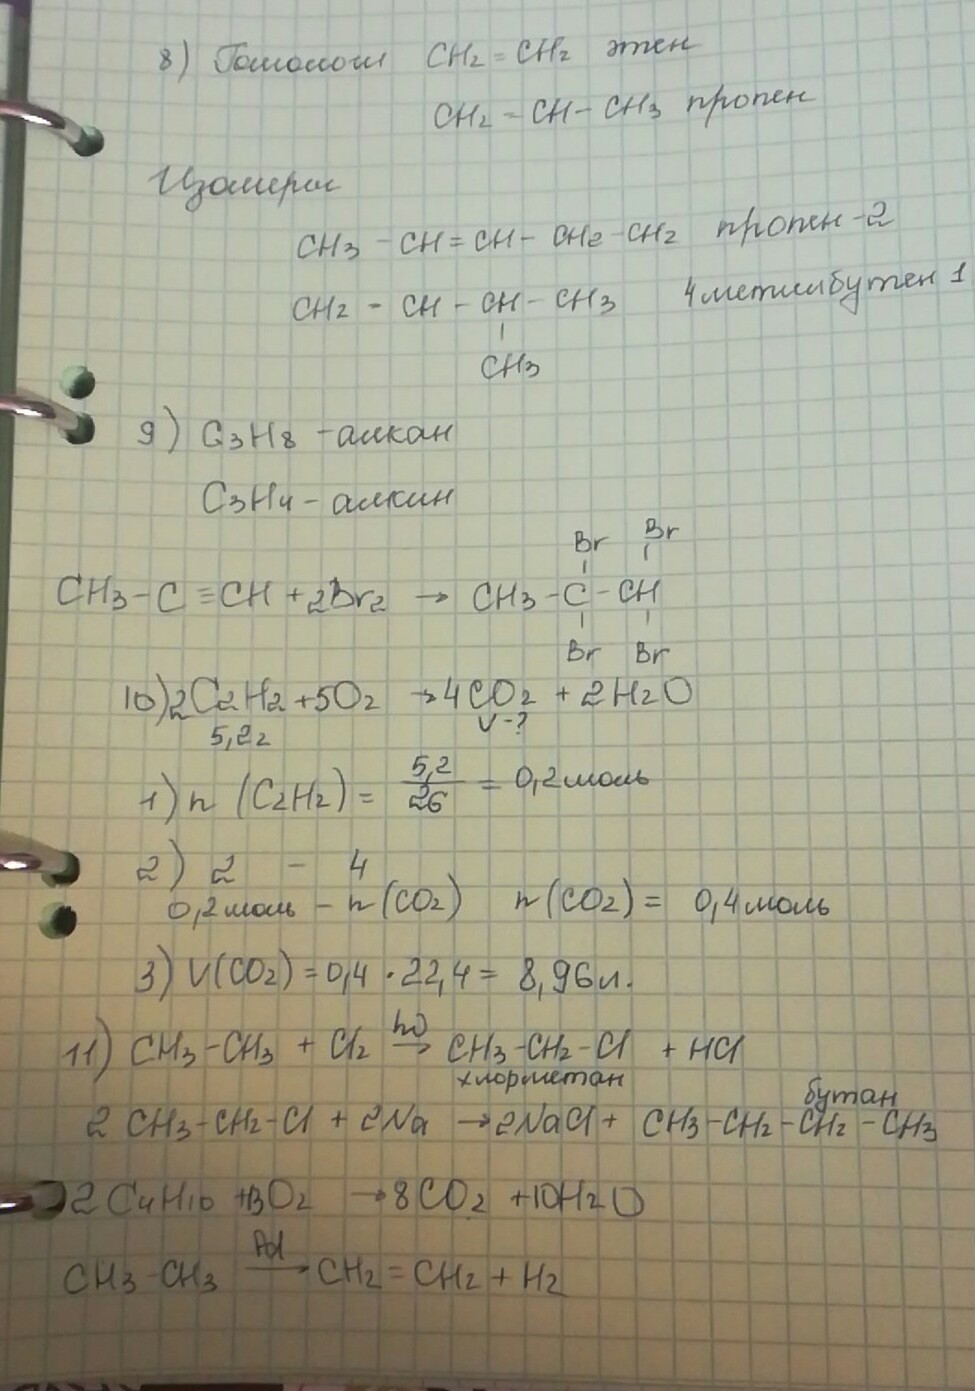 8) Гомологи CH2 = CH2 этен
CH2 = CH - CH3 пропен
Изомеры
CH3 - CH = CH - CH2 - CH2 пропен-2
CH2 - CH - CH - CH3 4метилбутен 1
CH3
9) C3H8 - алкан
C3H4 - алкин
Br Br
CH3 - C ≡ CH + 2Br2 → CH3 - C - CH
Br Br
10) 2C2H2 + 5O2 → 4CO2 + 2H2O
5,2г V-?
1) n (C2H2) = 5,2/26 = 0,2моль
2) 2 - 4
0,2моль - n(CO2) n(CO2) = 0,4моль
3) V(CO2) = 0,4 · 22,4 = 8,96л.
11) CH3 - CH3 + Cl2 hν→ CH3 - CH2 - Cl + HCl
хлорметан
бутан
2 CH3 - CH2 - Cl + 2Na → 2NaCl + CH3 - CH2 - CH2 - CH3
2C4H10 + 13O2 → 8CO2 + 10H2O
CH3 - CH3 Pd→ CH2 = CH2 + H2